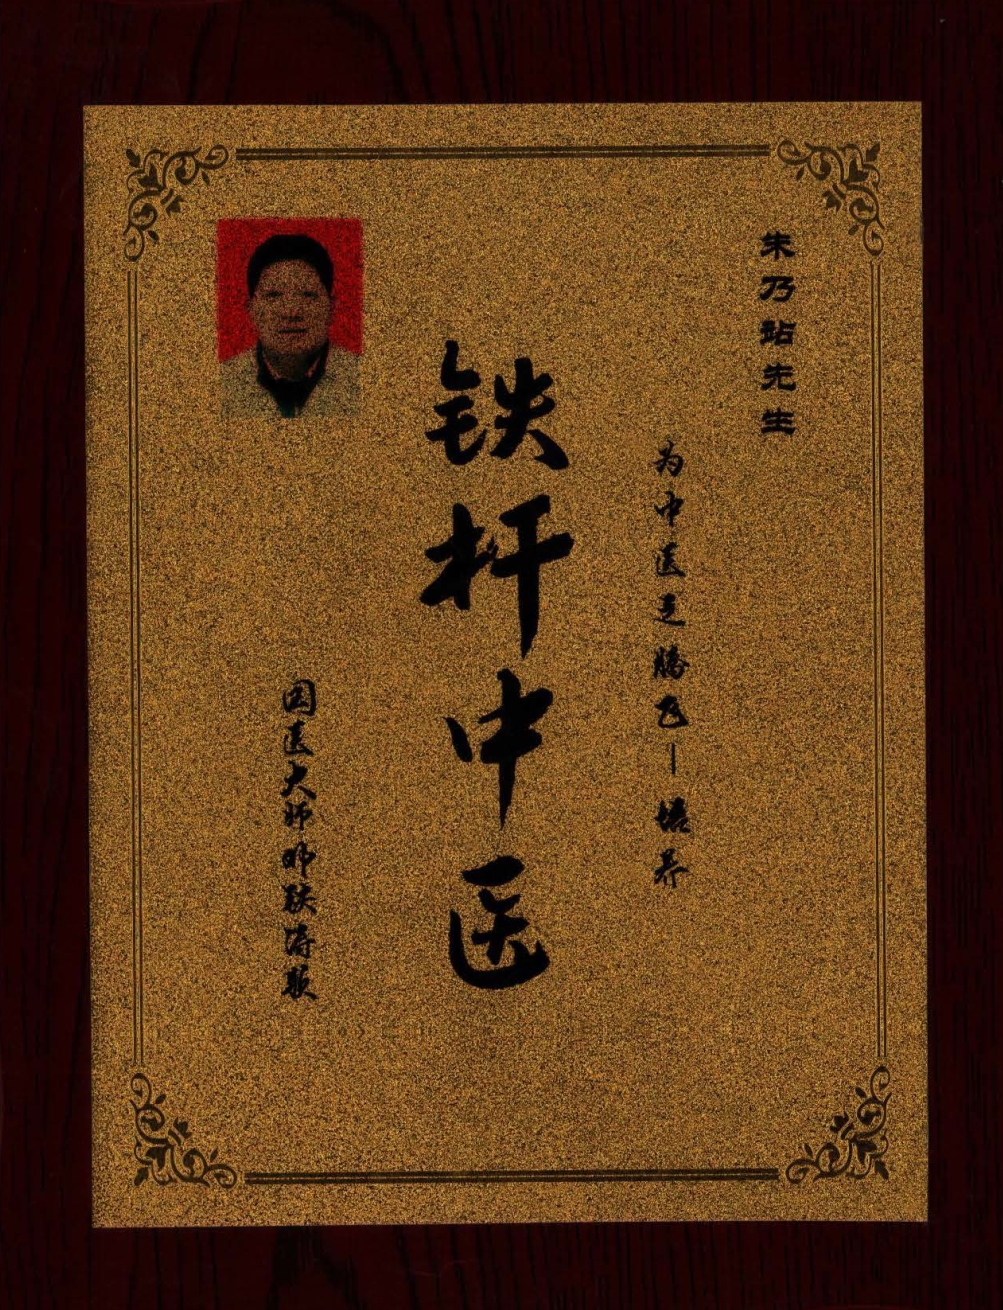 朱乃站先生
为中医之腾飞—培养
铁杆中医
国医大师邓铁涛题